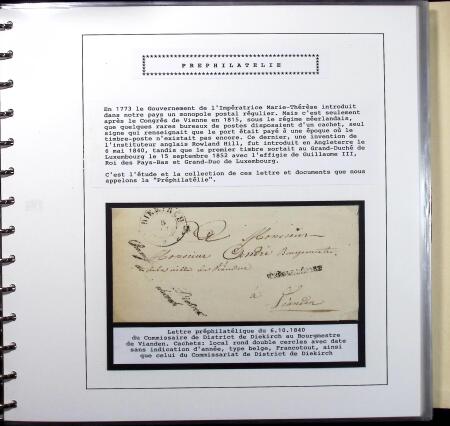 PREPHILATELIE
En 1773 le Gouvernement de l'Impératrice Marie-Thérèse introduit
dans notre pays un monopole postal régulier. Mais c'est seulement
après le Congrès de Vienne en 1815, sous le régime néerlandais,
que quelques rares bureaux de postes disposaient d'un cachet, seul
signe qui renseignait que le port était payé à une époque où le
timbre-poste n'existait pas encore. Ce dernier, une invention de
l'instituteur anglais Rowland Hill, fut introduit en Angleterre le
6 mai 1840, tandis que le premier timbre sortait au Grand-Duché de
Luxembourg le 15 septembre 1852 avec l'effigie de Guillaume III,
Roi des Pays-Bas et Grand-Duc de Luxembourg.
C'est l'étude et la collection de ces lettre et documents que nous
appelons la "Préphilatélie".
DIEKIRCH
A Monsieur
Monsieur André Bourgmestre
de la ville de Vianden
à
Vianden
Lettre préphilatélique du 6.10.1840
du Commissaire de District de Diekirch au Bourgmestre
de Vianden. Cachets: local rond double cercles avec date
sans indication d'année, type belge, Francotout, ainsi
que celui du Commissariat de District de Diekirch